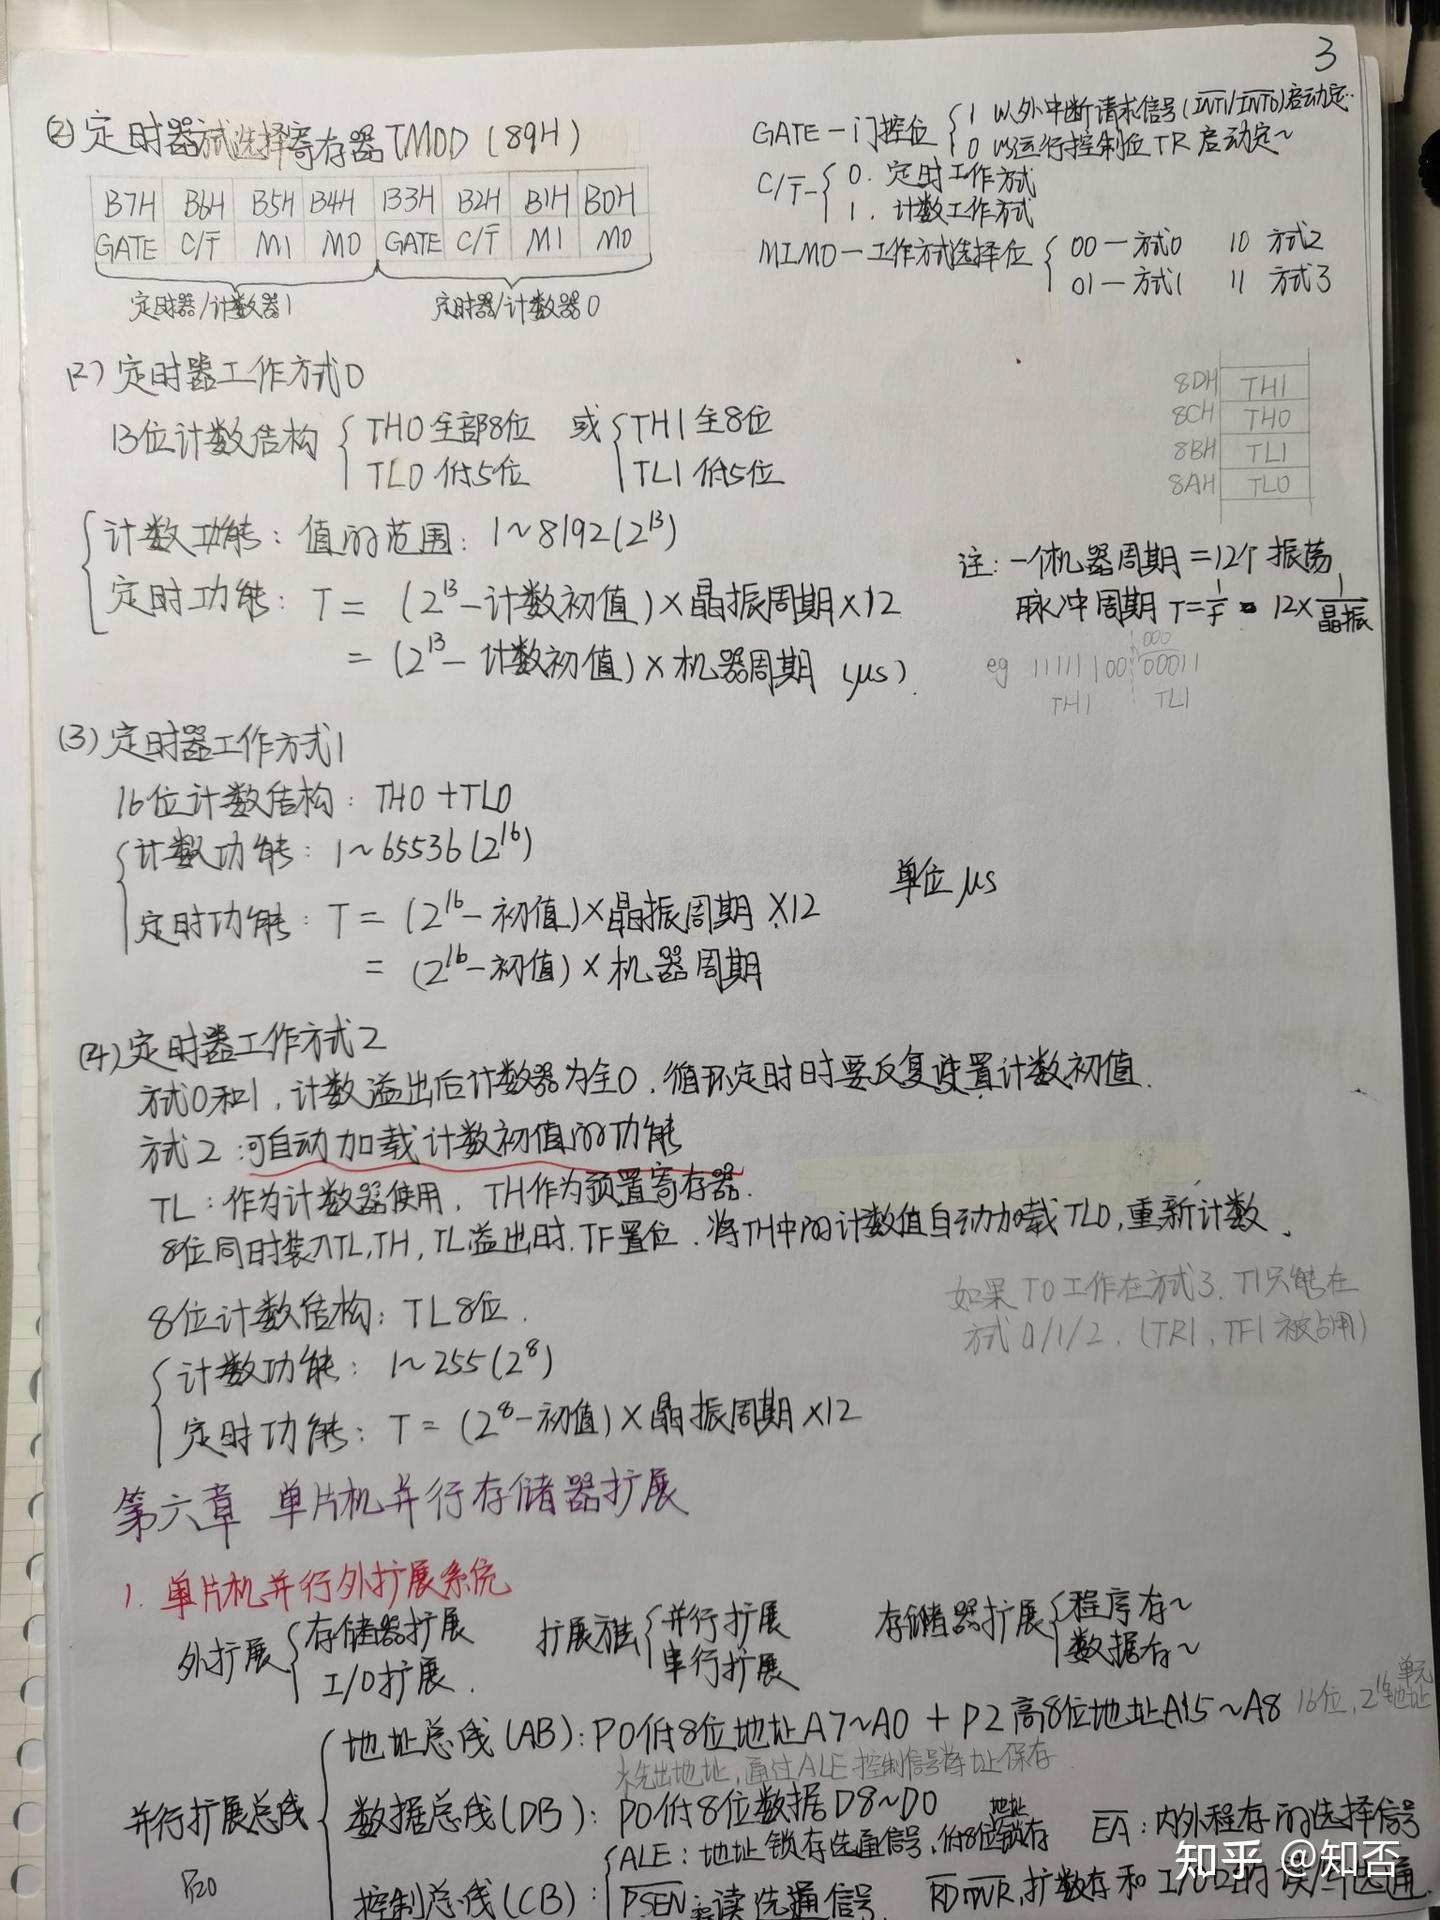 3
(2) 定时器方式选择寄存器TMOD (89H)
B7H B6H B5H B4H B3H B2H B1H B0H
GATE C/T̅ M1 M0 GATE C/T̅ M1 M0
定时器/计数器1 定时器/计数器0
GATE-门控位 { 1 以外中断请求信号(I̅N̅T̅1̅/I̅N̅T̅0̅)启动定~
0 以运行控制位TR启动定~
C/T̅- { 0. 定时工作方式
1. 计数工作方式
M1M0-工作方式选择位 { 00-方式0 10 方式2
01-方式1 11 方式3
(2) 定时器工作方式0
13位计数结构 { TH0全部8位 或 { TH1全8位
TL0低5位 TL1低5位
8DH TH1
8CH TH0
8BH TL1
8AH TL0
计数功能: 值的范围: 1~8192(2¹³)
定时功能: T = (2¹³-计数初值)×晶振周期×12
= (2¹³-计数初值)×机器周期 (μs).
注: 一个机器周期=12个振荡
脉冲周期 T=1/f = 12×1/晶振
000
eg 11111100 00011
TH1 TL1
(3) 定时器工作方式1
16位计数结构: TH0+TL0
计数功能: 1~65536(2¹⁶)
定时功能: T = (2¹⁶-初值)×晶振周期×12
= (2¹⁶-初值)×机器周期
单位μs
(4) 定时器工作方式2
方式0和1, 计数溢出后计数器为全0, 循环定时时要反复设置计数初值.
方式2: 可自动加载计数初值的功能
TL: 作为计数器使用, TH作为预置寄存器.
8位同时装入TL,TH, TL溢出时, TF置位, 将TH中的计数值自动加载TL0, 重新计数.
8位计数结构: TL8位.
计数功能: 1~255(2⁸)
定时功能: T = (2⁸-初值)×晶振周期×12
如果T0工作在方式3, T1只能在
方式0/1/2. (TR1, TF1被占用)
第六章 单片机并行存储器扩展
1. 单片机并行外扩展系统
外扩展 { 存储器扩展
I/O扩展.
扩展方法 { 并行扩展
串行扩展
存储器扩展 { 程序存~
数据存~
并行扩展总线
P20
地址总线(AB): P0低8位地址A7~A0 + P2高8位地址A15~A8 16位, 2¹⁶单元地址
先出地址, 通过ALE控制信号将址保存
数据总线(DB): P0低8位数据D8~D0
控制总线(CB): { ALE: 地址锁存选通信号, 低8位地址锁存
E̅A̅: 内外程存的选择信号
P̅S̅E̅N̅: 读选通信号
R̅D̅和W̅R̅, 扩数存和I/O口的读写选通
知乎 @知否